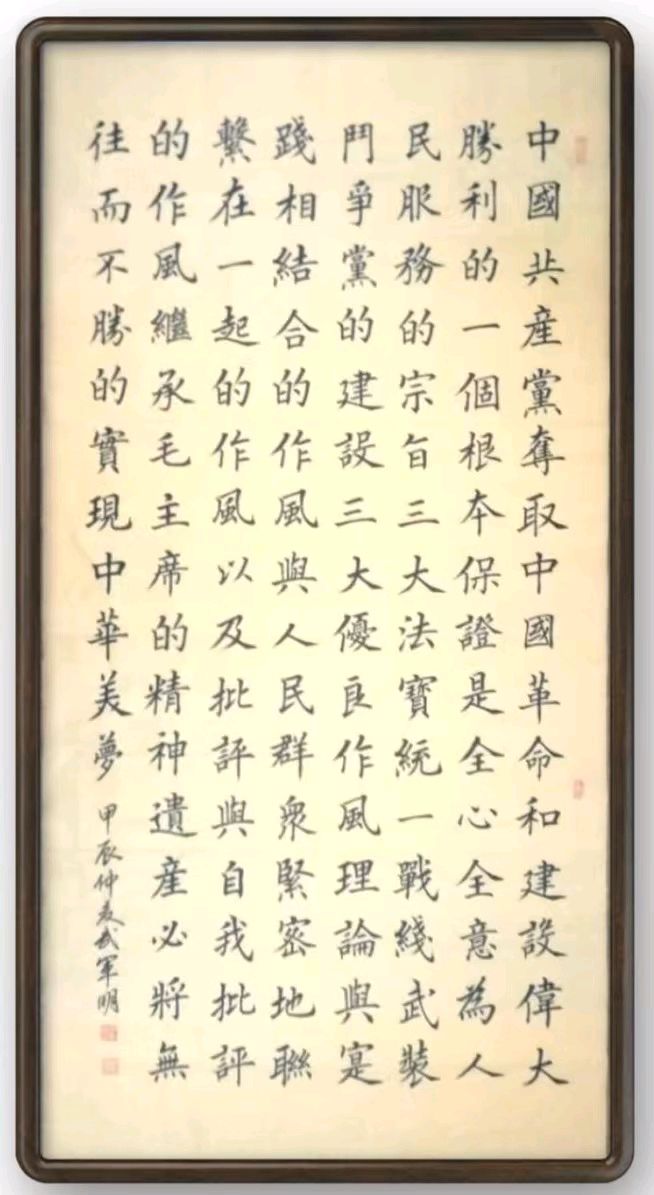 中國共產黨奪取中國革命和建設偉大
勝利的一個根本保證是全心全意為人
民服務的宗旨三大法寶統一戰綫武裝
鬥爭黨的建設三大優良作風理論與寔
踐相結合的作風與人民群衆緊密地聯
繫在一起的作風以及批評與自我批評
的作風繼承毛主席的精神遺產必將無
往而不勝的實現中華美夢
甲辰仲夏武軍明